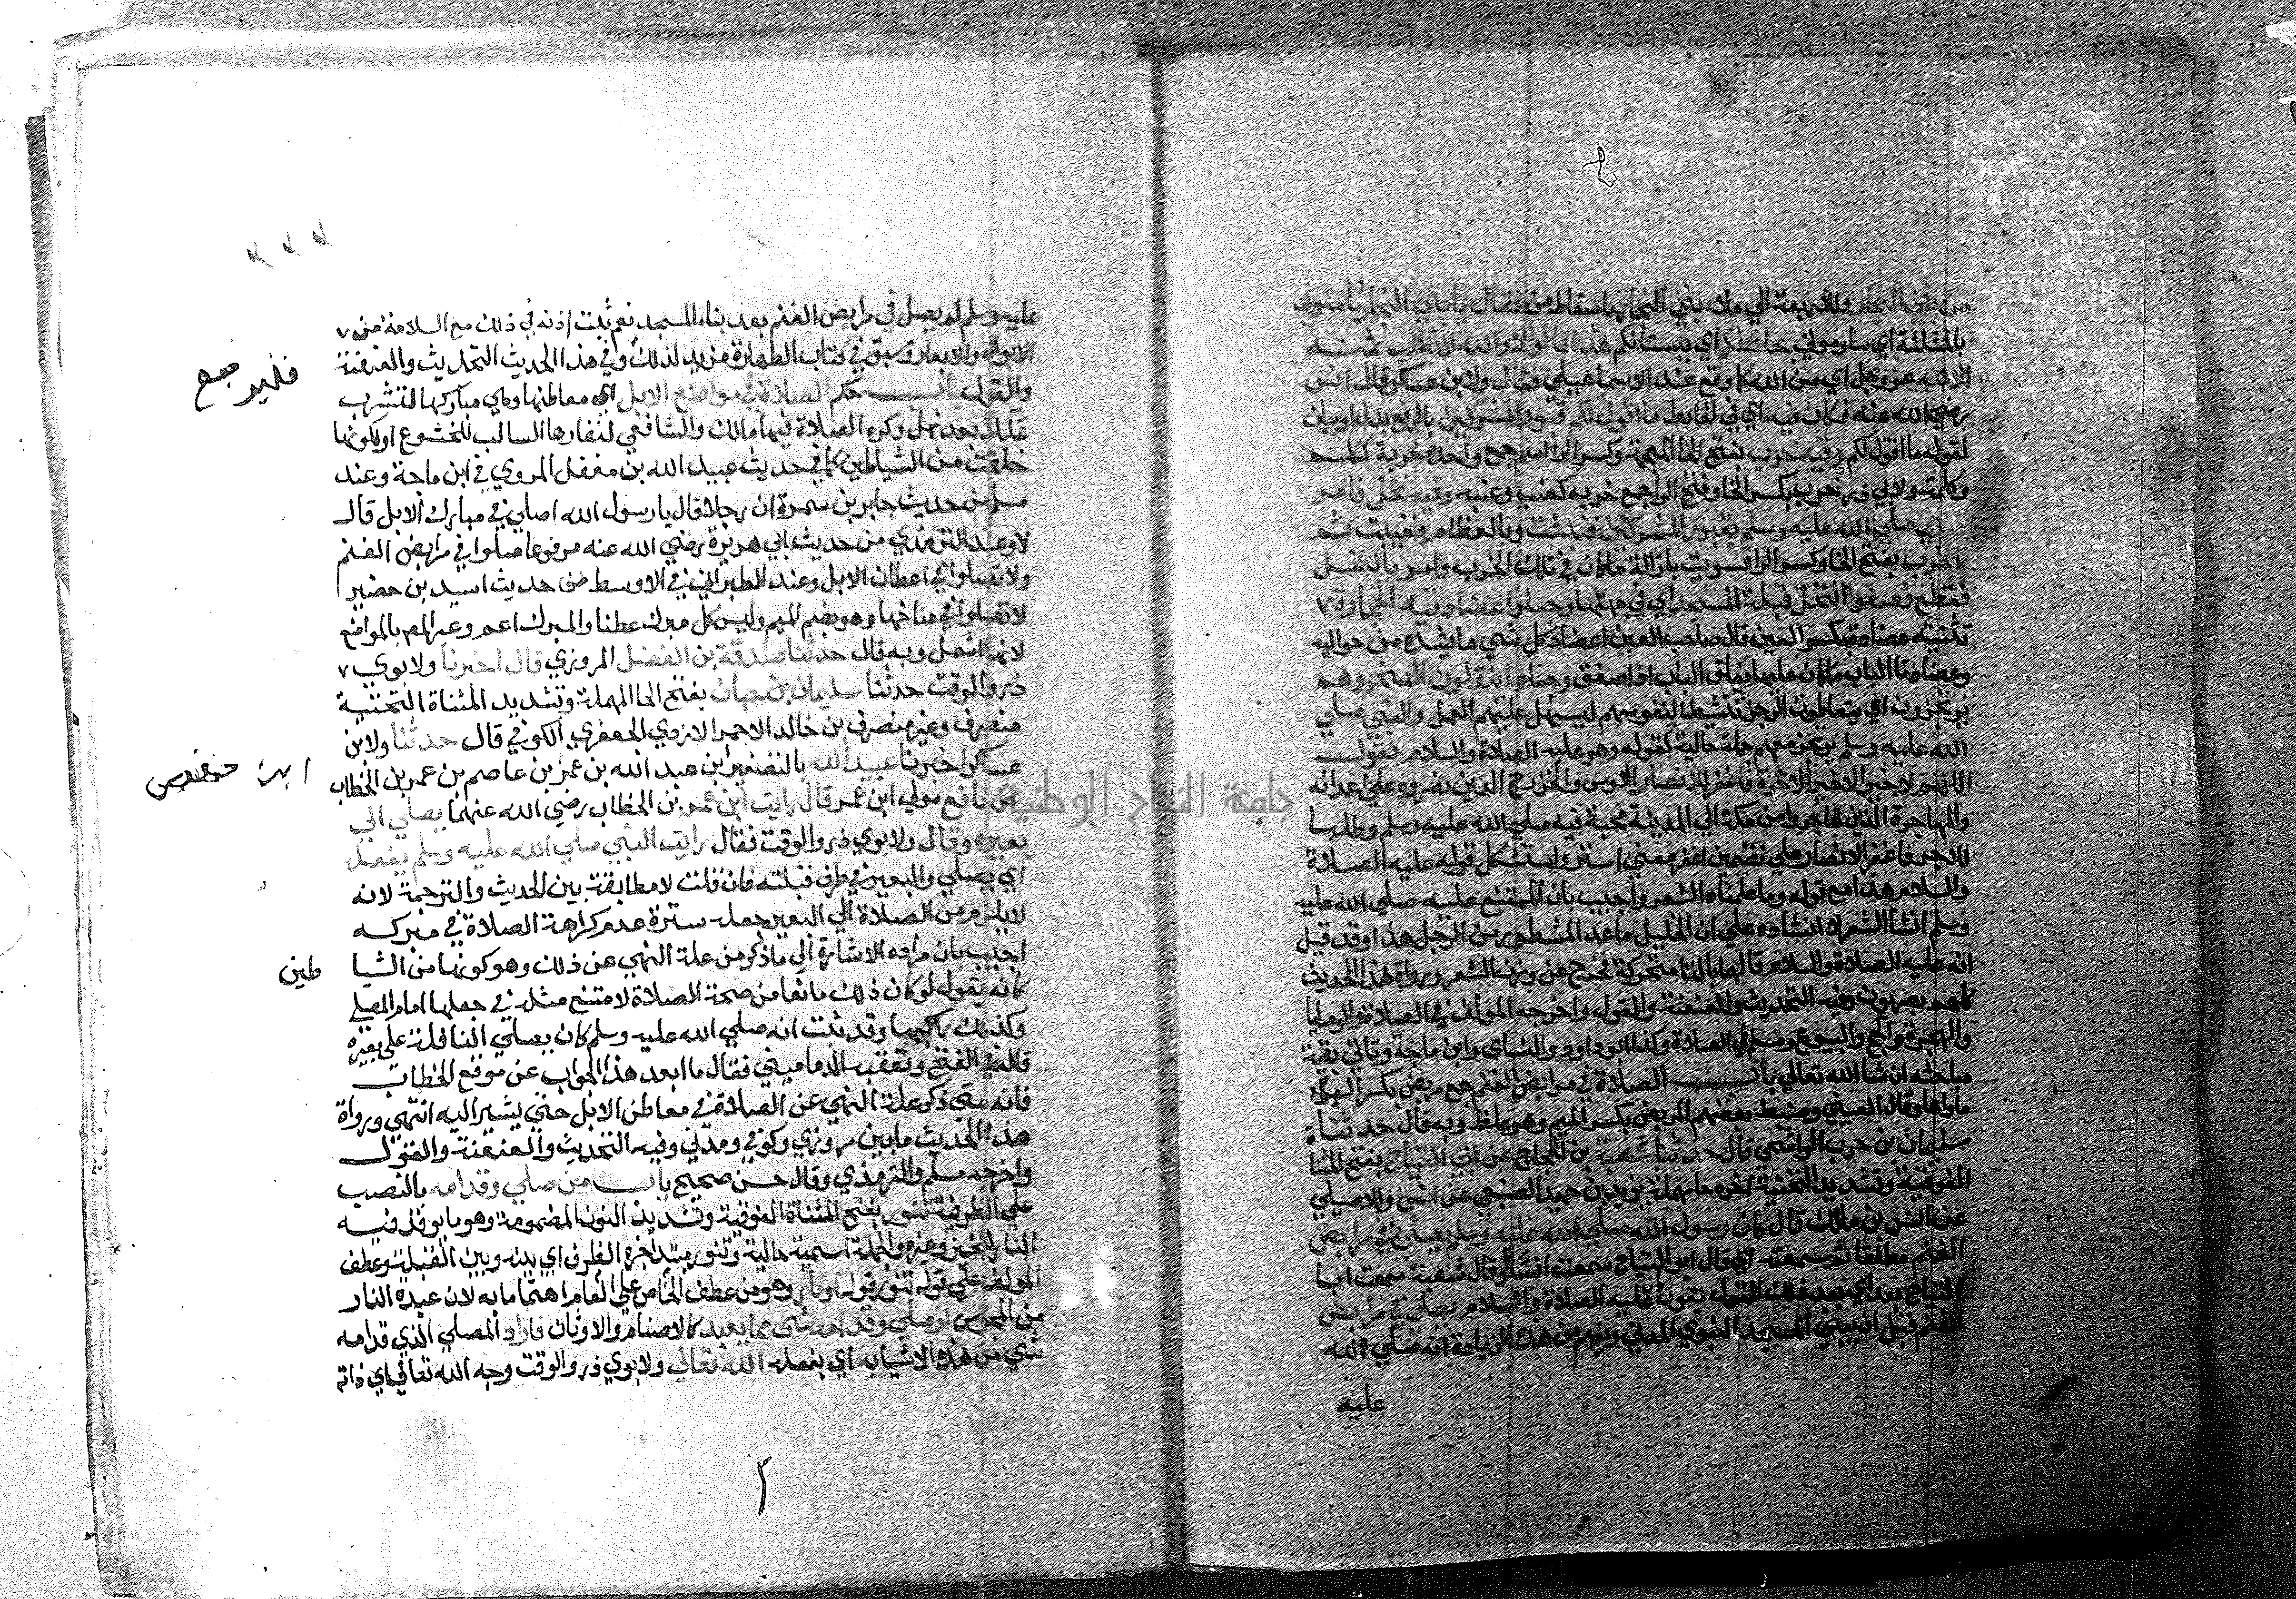 من بني النجار وللاربعة الي ملاء بني النجار باسقاط من فقال يا بني النجار ثامنوني
بالمثلثة اي ساوموني بحائطكم اي ببستانكم هذا قالوا لا والله لا نطلب ثمنه
الا الله عز وجل اي من الله كما وقع عند الاسماعيلي فقال ولابن عساكر قال انس
رضي الله عنه فكان فيه اي في الحائط ما اقول لكم قبور المشركين بالرفع بدل او بيان
لقوله ما اقول لكم وفيه خرب بفتح الخا المعجمة وكسر الرا اسم جمع واحده خربة ككلم
وكلمة ولابي ذر خرب بكسر الخا وفتح الرا جمع خربه كعنب وعنبه وفيه نخل فامر
صلي الله عليه وسلم بقبور المشركين فنبشت وبالعظام فغيبت ثم
بالخرب بفتح الخا وكسر الرا فسويت بازالة ما كان في تلك الخرب وامر بالنخل
فقطع فصفوا النخل قبلة المسجد اي في جهتها وجعلوا عضادتيه الحجارة
تثنية عضادة بكسر العين قال صاحب العين اعضاد كل شي ما يشده من حواليه
وعضادتا الباب ما كان عليهما يغلق الباب اذا اصفق وجعلوا ينقلون الصخر وهم
يرتجزون اي يتعاطون الرجز تنشيطا لنفوسهم ليسهل عليهم العمل والنبي صلي
الله عليه وسلم يرتجز معهم جملة حالية كقوله وهو عليه الصلاة والسلام يقول
اللهم لا خير الا خير الاخرة فاغفر للانصار الاوس والخزرج الذين نصروه علي اعدائه
والمهاجرة الذين هاجروا من مكة الي المدينة محبة فيه صلي الله عليه وسلم وطلبا
للاجر فاغفر الانصار علي تضمين اغفر معني استر واستشكل قوله عليه الصلاة
والسلام هذا مع قوله وما علمناه الشعر واجيب بان الممتنع عليه صلي الله عليه
وسلم انشا الشعر لا انشاده علي ان الخليل ما عد المشطور من الرجل هذا وقد قيل
انه عليه الصلاة والسلام قالها بالتا متحركة فخرج عن وزن الشعر ورواة هذا الحديث
كلهم بصريون وفيه التحديث والعنعنة والقول واخرجه المولف في الصلاة والوصايا
والهجرة والحج والبيوع ومسلم في الصلاة وكذا ابو داود والنساي وابن ماجة وتاتي بقية
مباحثه ان شا الله تعالي باب الصلاة في مرابض الغنم جمع مربض بكسر الباء
ماواها وقال العيني وضبط بعضهم المربض بكسر الميم وهو غلط وبه قال حدثناة
سليمان بن حرب الواشحي قال حدثنا شعبة بن الحجاج عن ابي التياح بفتح المثنا
الفوقية وتشديد التحتية اخره حا مهملة يزيد بن حميد الضبعي عن انس وللاصيلي
عن انس بن مالك قال كان رسول الله صلي الله عليه وسلم يصلي في مرابض
الغنم مطلقا ثم سمعته اي قال ابو التياح سمعت انسا وقال شعبة سمعت ابا
التياح بعد اي بعد ذلك القول يقول كان عليه الصلاة والسلام يصلي في مرابض
الغنم قبل ان يبني المسجد النبوي المدني ويفهم من هذه الزيادة انه صلي الله
عليه
عليه وسلم لم يصل في مرابض الغنم بعد بناء المسجد نعم ثبت اذنه في ذلك مع السلامة من
الابوال والابعار وسبق في كتاب الطهارة مزيد لذلك وفي هذا الحديث التحديث والعنعنة
والقول باب حكم الصلاة في مواضع الابل اي معاطنها وهي مباركها لتشرب
عللا بعد نهل وكره الصلاة فيها مالك والشافعي لنفارها السالب للخشوع او لكونها
خلقت من الشياطين كما في حديث عبيد الله بن مغفل المروي في ابن ماجة وعند
مسلم من حديث جابر بن سمرة ان رجلا قال يا رسول الله اصلي في مبارك الابل قال
لا وعند الترمذي من حديث ابي هريرة رضي الله عنه مرفوعا صلوا في مرابض الغنم
ولا تصلوا في اعطان الابل وعند الطبراني في الاوسط من حديث اسيد بن حضير
لا تصلوا في مناخها وهو بضم الميم وليس كل مبرك عطنا والمبرك اعم وعبر المص بالمواضع
لانها اشمل وبه قال حدثنا صدقة بن الفضل المروزي قال اخبرنا ولابوي
ذر والوقت حدثنا سليمان بن حيان بفتح الحا المهملة وتشديد المثناة التحتية
منصرف وغير منصرف بن خالد الاحمر الازدي الجعفري الكوفي قال حدثنا ولابن
عساكر اخبرنا عبيد الله بالتصغير ابن عبد الله بن عمر بن عاصم بن عمر بن الخطاب
عن نافع مولي ابن عمر قال رايت ابن عمر بن الخطاب رضي الله عنهما يصلي الي
بعيره وقال ولابوي ذر والوقت فقال رايت النبي صلي الله عليه وسلم يفعله
اي يصلي والبعير في طرف قبلته فان قلت لا مطابقة بين الحديث والترجمة لانه
لا يلزم من الصلاة الي البعير جعله سترة عدم كراهة الصلاة في مبركه
اجيب بان مراده الاشارة الي ما ذكر من علة النهي عن ذلك وهو كونها من الشيا طين
كانه يقول لو كان ذلك مانعا من صحة الصلاة لامتنع مثله في جعلها امام المصلي
وكذلك راكبها وقد ثبت انه صلي الله عليه وسلم كان يصلي النافلة علي بعيره
قاله في الفتح وتعقبه الدماميني فقال ما ابعد هذا الجواب عن موقع الخطاب
فانه متي ذكر علة النهي عن الصلاة في معاطن الابل حتي يشير اليه انتهي ورواة
هذا الحديث ما بين مروزي وكوفي ومدني وفيه التحديث والعنعنة والقول
واخرجه مسلم والترمذي وقال حسن صحيح باب من صلي وقدامه بالنصب
علي الظرفية تنور بفتح المثناة الفوقية وتشديد النون المضمومة وهو ما يوقد فيه
النار للخبز وغيره والجملة اسمية حالية وتنور مبتدا خبره الظرف اي بينه وبين القبلة وعطف
المولف علي قوله تنور قوله او نار وهو من عطف الخاص علي العام اهتماما به لان عبدة النار
من المجوس او صلي وقدامه شي مما يعبد كالاصنام والاوثان فاراد المصلي الذي قدامه
شي من هذه الاشيا به اي بفعله الله تعالي ولابوي ذر والوقت وجه الله تعالي اي ذاته
جامعة النجاح الوطنية